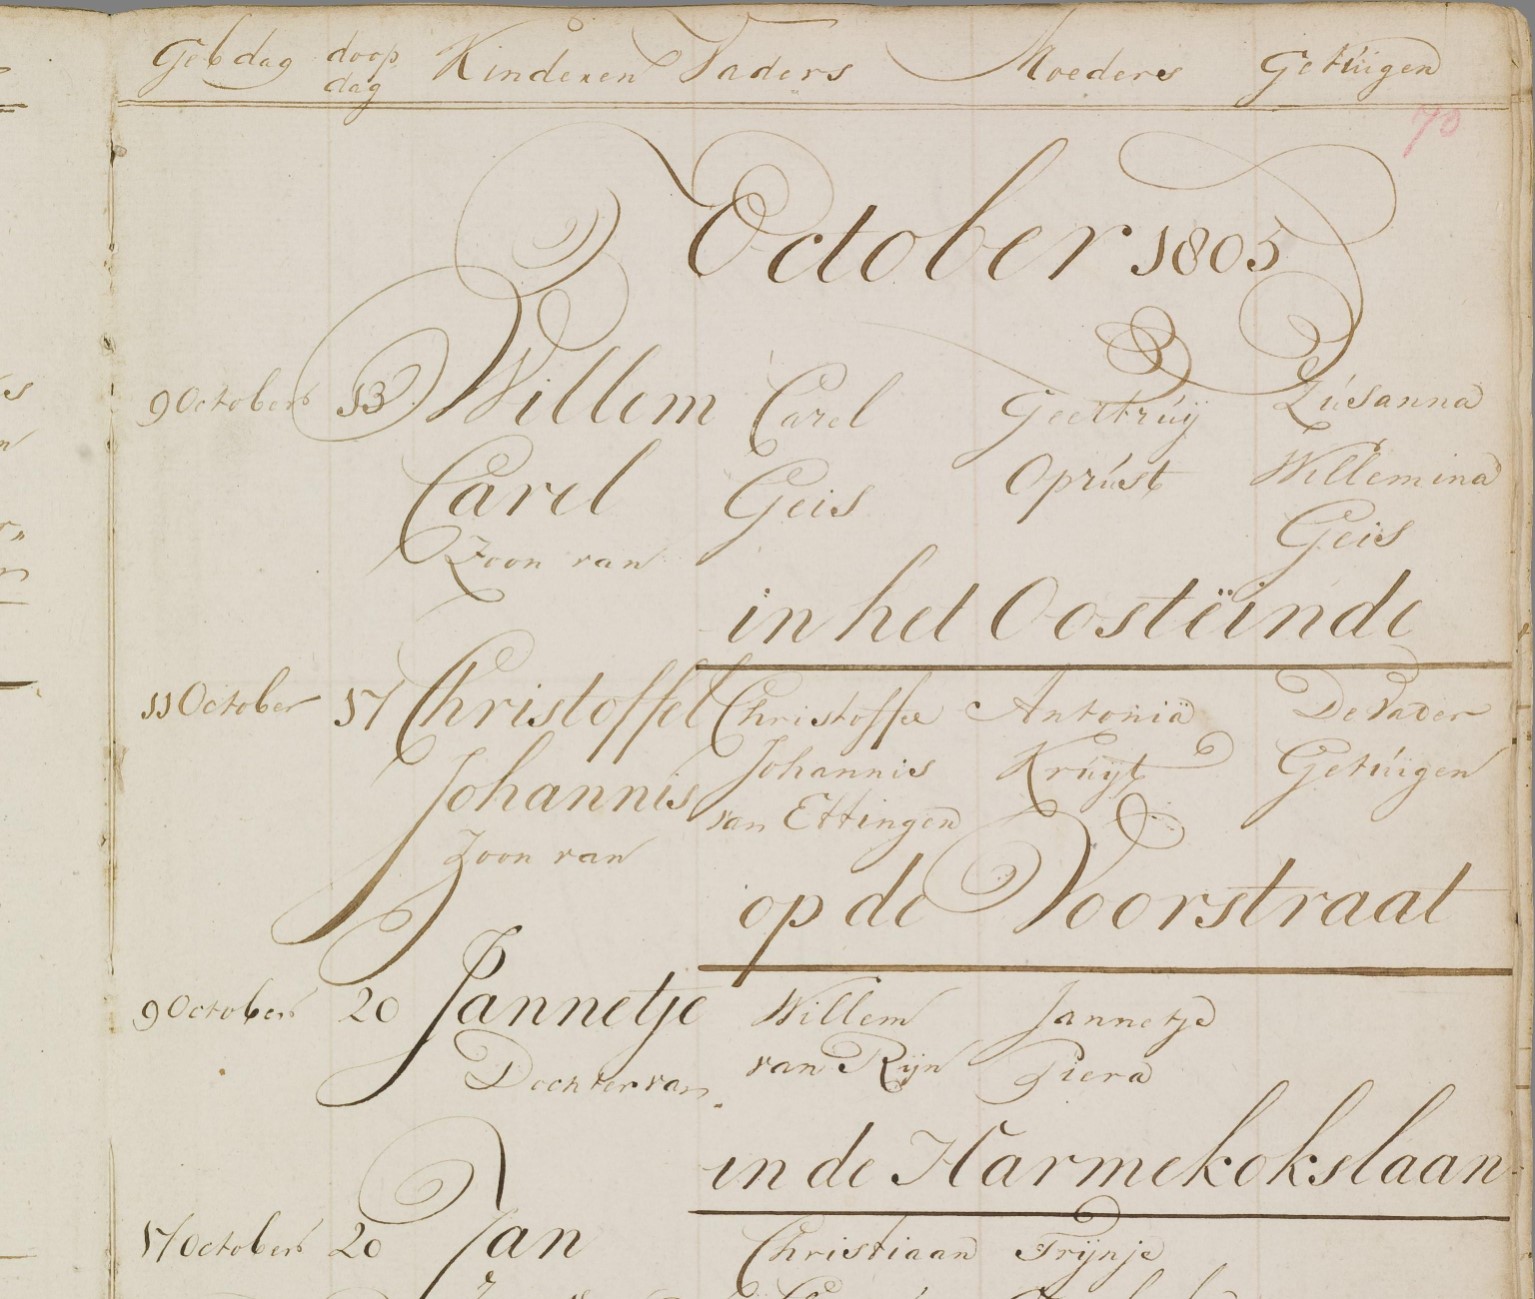 Geb dag doop dag Kinderen Vaders Moeders Getuigen
70
October 1805
9 October 13 Willem Carel Geertruÿ Zusanna
Carel Geis Oprust Willemina
Zoon van Geis
in het Oosteinde
11 October 17 Christoffel Christoffe Antonia De Vader
Johannis Johannis Kruyt Getuigen
Zoon van van Ettingen
op de Voorstraat
9 October 20 Jannetje Willem Jannetje
Dochter van van Rijn Piera
in de Harmekokslaan
17 October 20 Jan Christiaan Trijnje